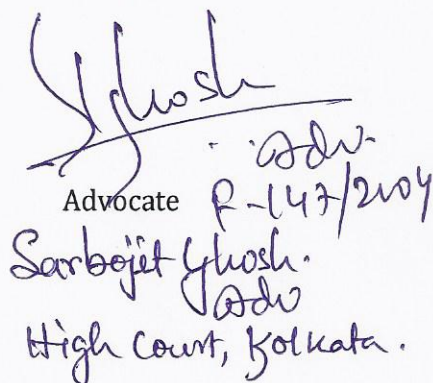 SGhosh
Adv.
Advocate F-147/2004
Sarbojit Ghosh.
Adv
High Court, Kolkata.